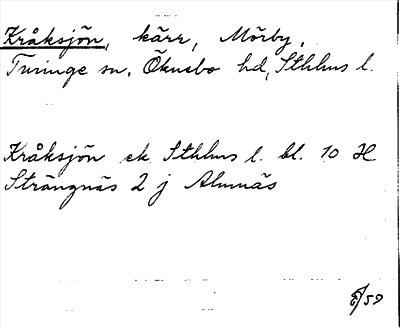 Kråksjön, kärr, Mörby,
Turinge sn. Öknebo hd, Sthlms l.
Kråksjön ek. Sthlms l. bl. 10 H
Strängnäs 2 j Alunäs
/59